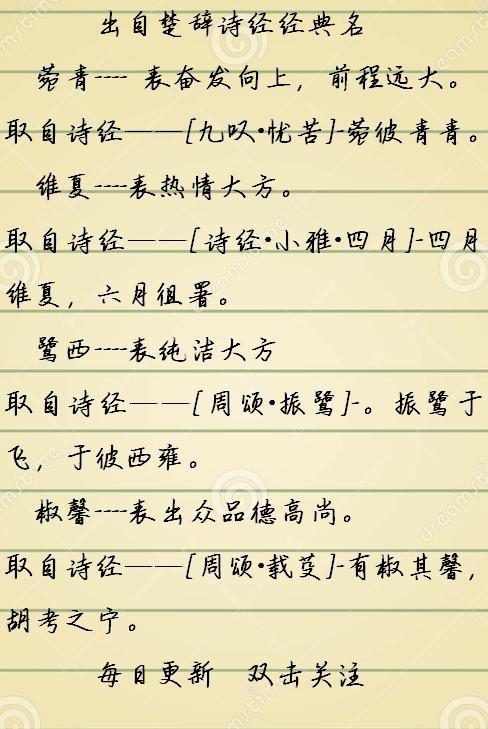 出自楚辞诗经经典名
菀青---- 表奋发向上，前程远大。
取自诗经——[九叹•忧苦]-菀彼青青。
维夏----表热情大方。
取自诗经——[诗经•小雅•四月]-四月
维夏，六月徂署。
鹭西----表纯洁大方
取自诗经——[周颂•振鹭]-。振鹭于
飞，于彼西雍。
椒馨----表出众品德高尚。
取自诗经——[周颂•载芟]-有椒其馨，
胡考之宁。
每日更新 双击关注